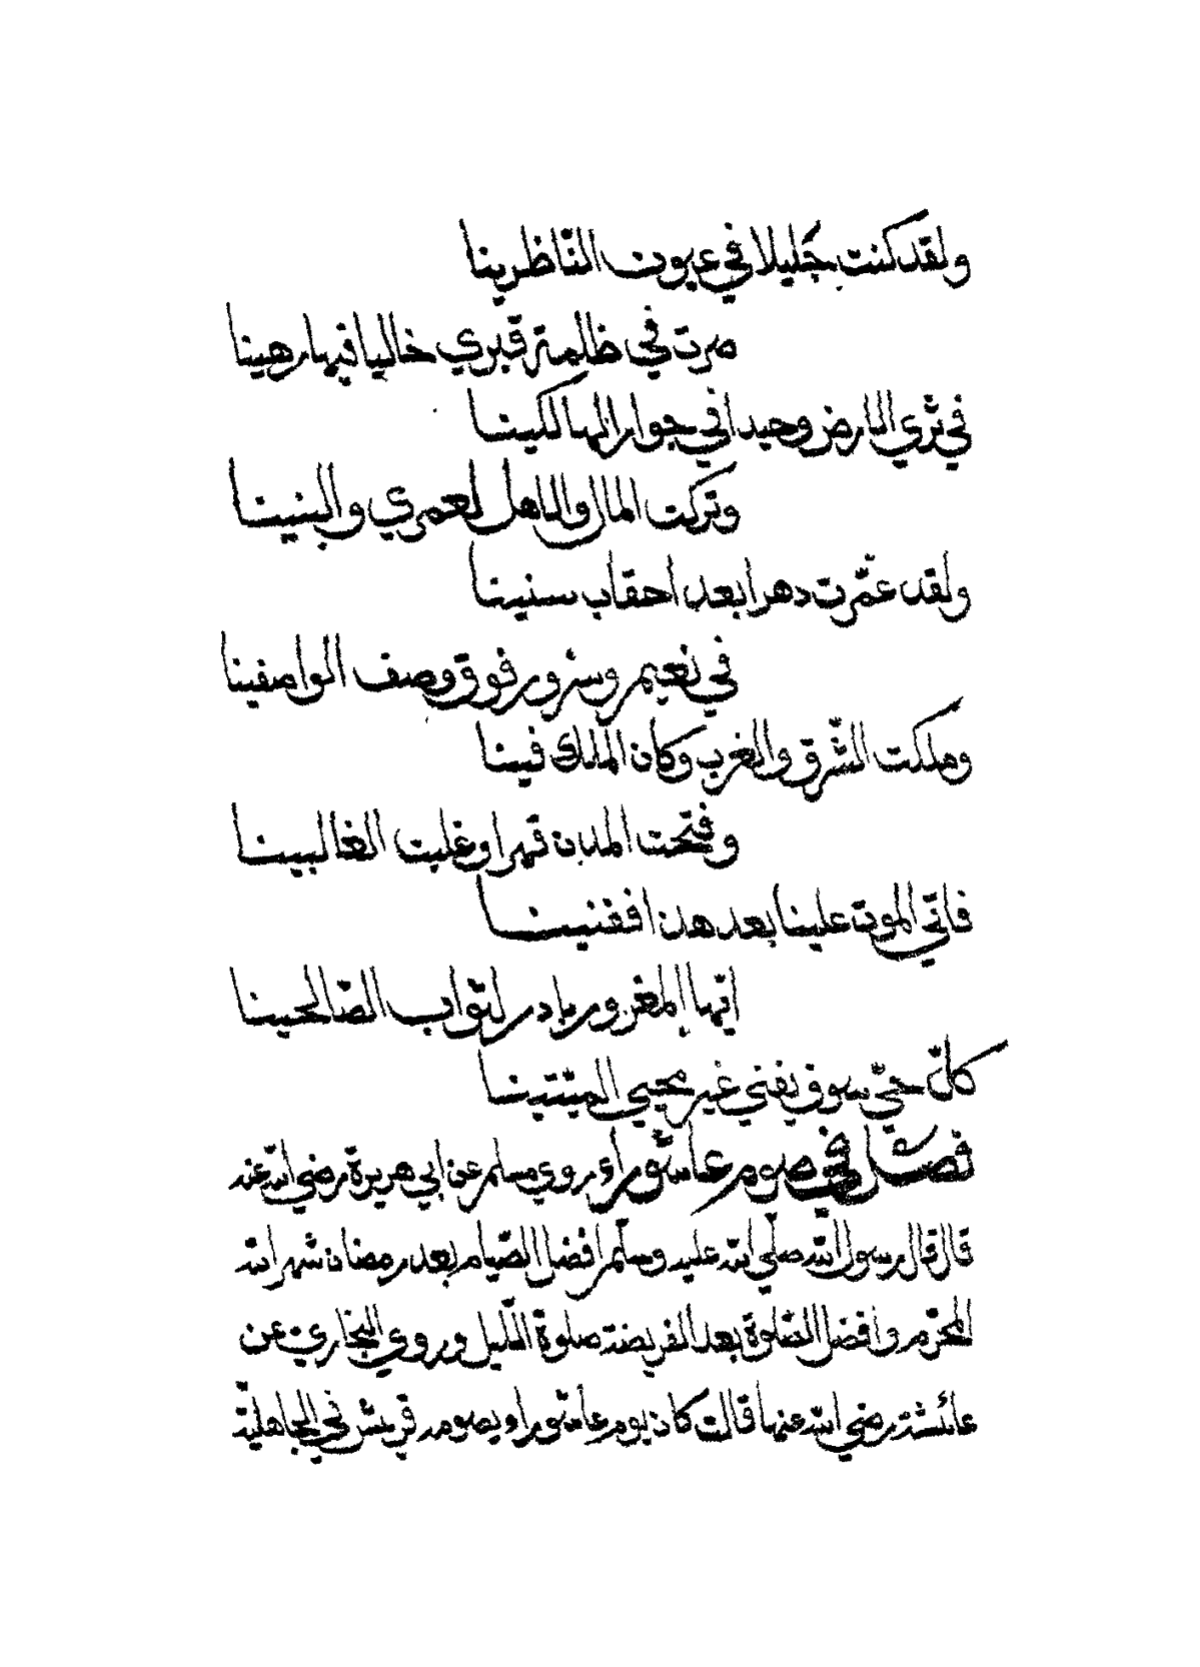 ولقد كنت جليلا في عيون النّاظرينا
صرت في ظلمة قبري خاليا فيها رهينا
في ثري الارض وحيدا في جوار الهالكينا
وتركت المال والاهل لعمري والبنينا
ولقد عمّرت دهرا بعد أحقاب سنينا
في نعيم وسرور فوق وصف الواصفينا
وملكت الشّرق والغرب وكان الملك فينا
وفتحت المدن قهرا وغلبت الغالبينا
فاتي الموت علينا بعد هذا ففنينا
ايّها المغرور بادر لثواب الصّالحينا
كلّ حيّ سوف يفني غير محيي الميّتينا
فصل في صوم عاشوراء روي مسلم عن ابي هريرة رضي الله عنه
قال قال رسول الله صلّي الله عليه وسلّم افضل الصّيام بعد رمضان شهر الله
المحرّم وافضل الصّلوة بعد الفريضة صلوة اللّيل وروي البخاري عن
عائشة رضي الله عنها قالت كان يوم عاشوراء يصومه قريش في الجاهليّة